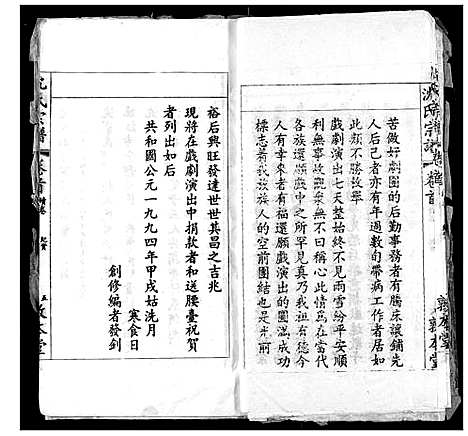 苦做好劇團的后勤事務者有騰床讓鋪先
人后己者亦有年過數旬帶病工作者如
此類不勝故舉
戲劇演出七天整始終不見雨雪紛平安順
利無事故觀衆無不曰稱心此情爲在當代
各族還願戲之所罕見真乃我族人自古今
人有幸來者有福還願戲演出的圓滿成功
標志着我族族人的空前團結也是先前
裕后興旺發達世世其昌之吉兆
現將在戲劇演出中捐款者和送腰臺祝賀
者列出如后
共和國公元一九九四年甲戌姑洗月
寒食日
創修編者發釗
沈氏宗譜
卷首
敦本堂